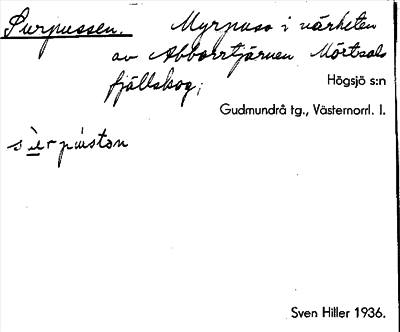 Surpussen. Myrpuss i närheten
av Abborrtjärnen Mörtsals
fjällskog;
Högsjö s:n
Gudmundrå tg., Västernorrl. l.
Sven Hiller 1936.